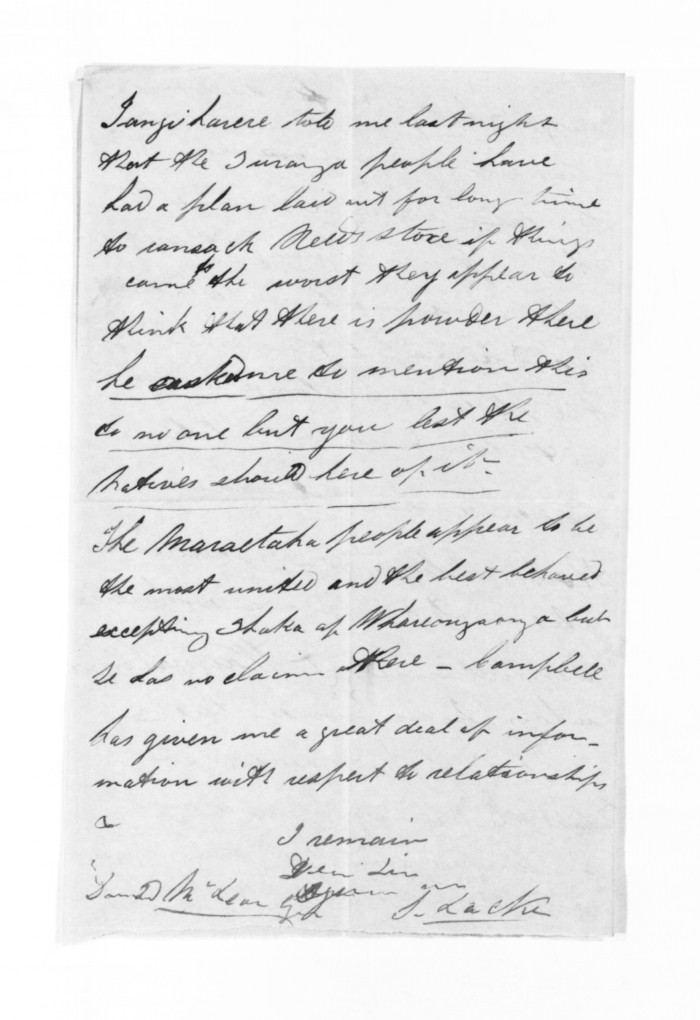 Tangiharere told me last night
that the Turanga people have
had a plan laid out for long time
to ransack Reeds store if things
came to the worst they appear to
think that there is powder there
he asked me to mention this
to no one but you lest the
natives should here of it -
The Maraetaha people appear to be
the most united and the best behaved
excepting Ihaka of Whareongaonga but
he has no claim there - Campbell
has given me a great deal of infor-
mation with respect to relationships
I remain
Dear Sir
Donald McLean Esq
S. Locke